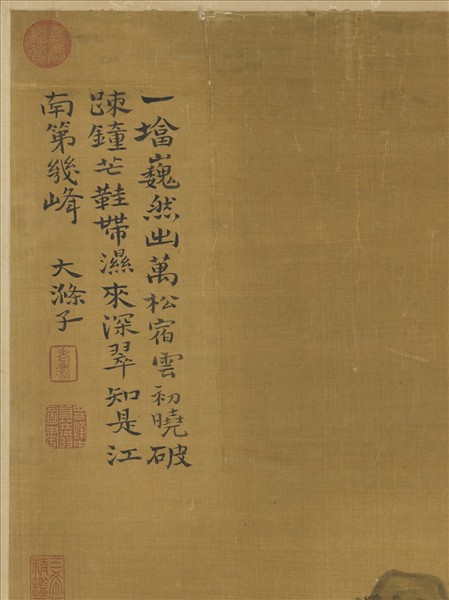 一塔巍然出萬松宿雲初曉破
踈鐘芒鞋帶濕來深翠知是江
南第幾峰
大滌子